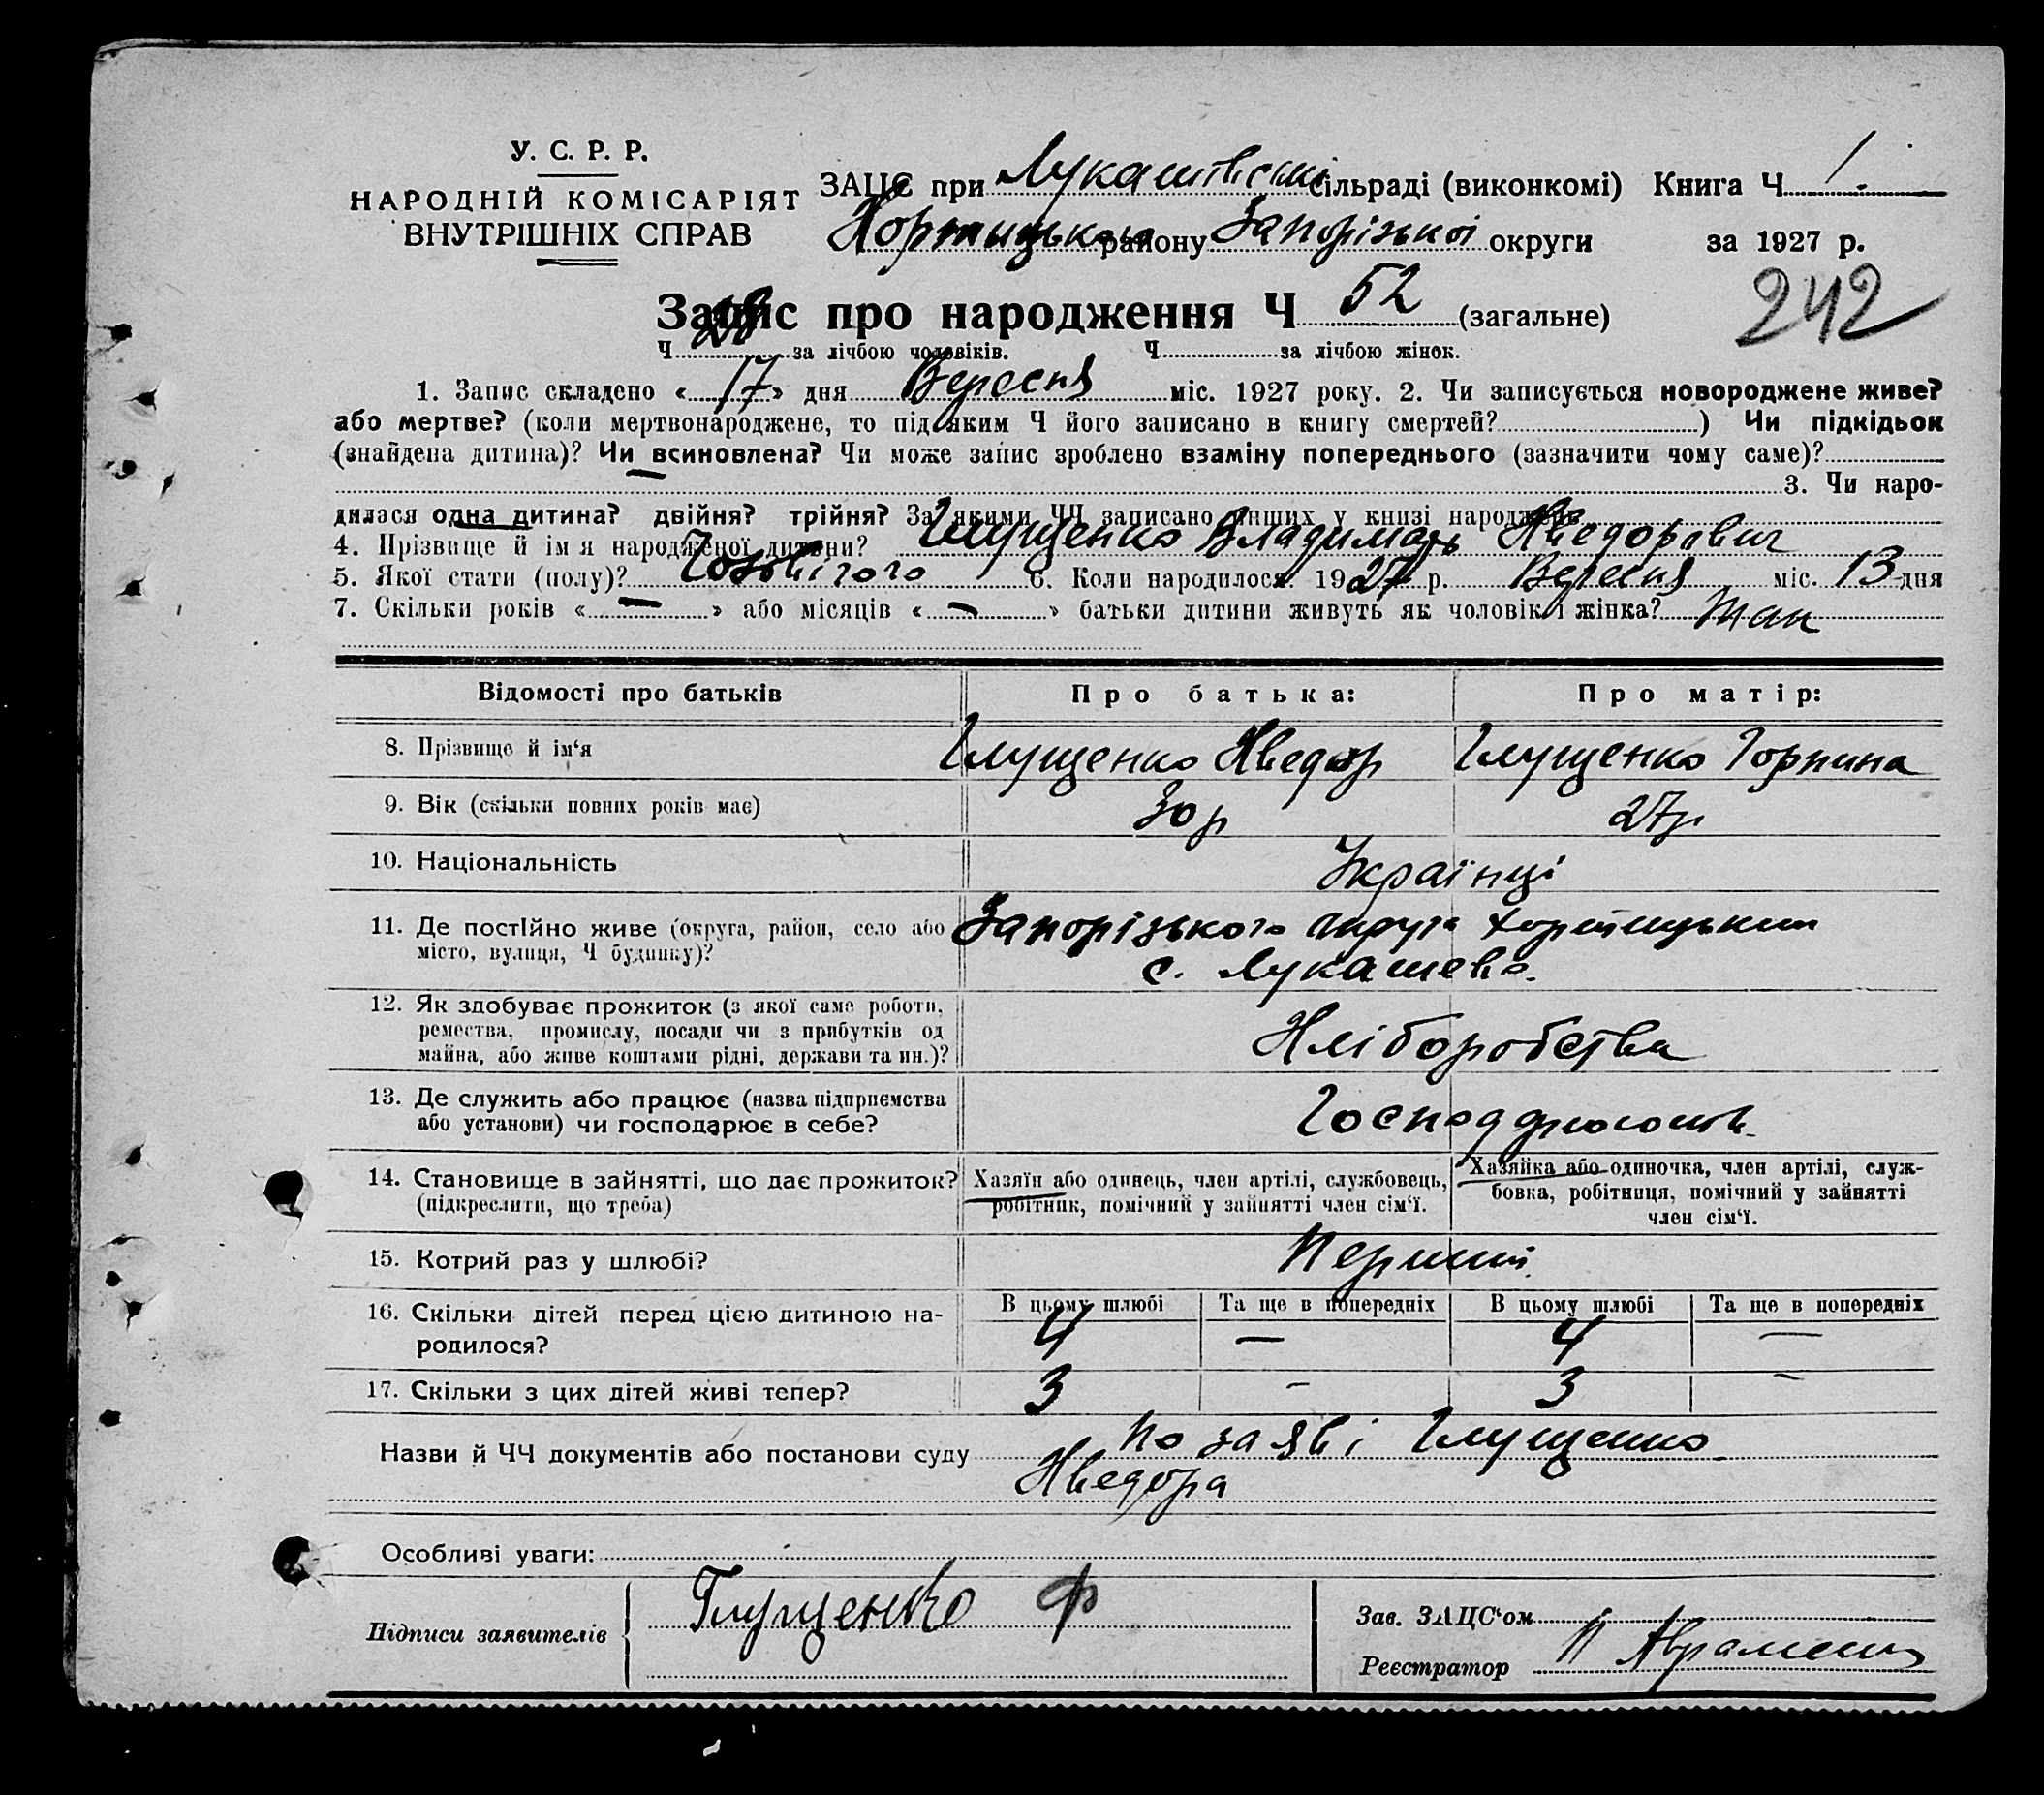 У. С. Р. Р.
НАРОДНІЙ КОМІСАРІЯТ
ВНУТРІШНІХ СПРАВ
ЗАЦС при Лукашівській сільраді (виконкомі) Книга Ч 1.
Хортицького району Запорізької округи за 1927 р.
242
Запис про народження Ч 52 (загальне)
Ч 28 за лічбою чоловіків. Ч за лічбою жінок.
1. Запис складено « 17 » дня Вересня міс. 1927 року. 2. Чи записується новороджене живе?
або мертве? (коли мертвонароджене, то під яким Ч його записано в книгу смертей? ) Чи підкідьок
(знайдена дитина)? Чи всиновлена? Чи може запис зроблено взаміну попереднього (зазначити чому саме)?
3. Чи наро-
дилася одна дитина? двійня? трійня? За якими ЧЧ записано инших у книзі народжень
4. Прізвище й ім я народженої дитини? Глущенко Владимарь Хведорович
5. Якої стати (полу)? 6. Коли народилося? 1927 р. Вересня міс. 13 дня
7. Скільки років « — » або місяців « — » батьки дитини живуть як чоловік і жінка? Так
Відомості про батьків Про батька: Про матір:
8. Прізвище й ім‘я Глущенко Хведор Глущенко Горпина
9. Вік (скільки повних років має) 30 р 27 р
10. Національність Українці
11. Де постійно живе (округа, район, село або Запорізького округа Хортицький
місто, вулиця, Ч будинку)? с. Лукашево.
12. Як здобуває прожиток (з якої саме роботи,
ремества, промислу, посади чи з прибутків од Хліборобства
майна, або живе коштами рідні, держави та ин.)?
13. Де служить або працює (назва підприємства
або установи) чи господарює в себе?
14. Становище в зайнятті, що дає прожиток? Хазяїн або одинець, член артілі, службовець, Хазяйка або одиночка, член артілі, служ-
(підкреслити, що треба) робітник, помічний у зайнятті член сім‘ї. бовка, робітниця, помічний у зайнятті
член сім‘ї.
15. Котрий раз у шлюбі? Перший
16. Скільки дітей перед цією дитиною на- В цьому шлюбі Та ще в попередніх В цьому шлюбі Та ще в попередніх
родилося? 4 — 4 —
17. Скільки з цих дітей живі тепер? 3 - 3 —
Назви й ЧЧ документів або постанови суду По заяві Глущенко
Хведора
Особливі уваги:
Підписи заявителів Глущенко Ф
Зав. ЗАЦС‘ом
Реєстратор П Авраменко